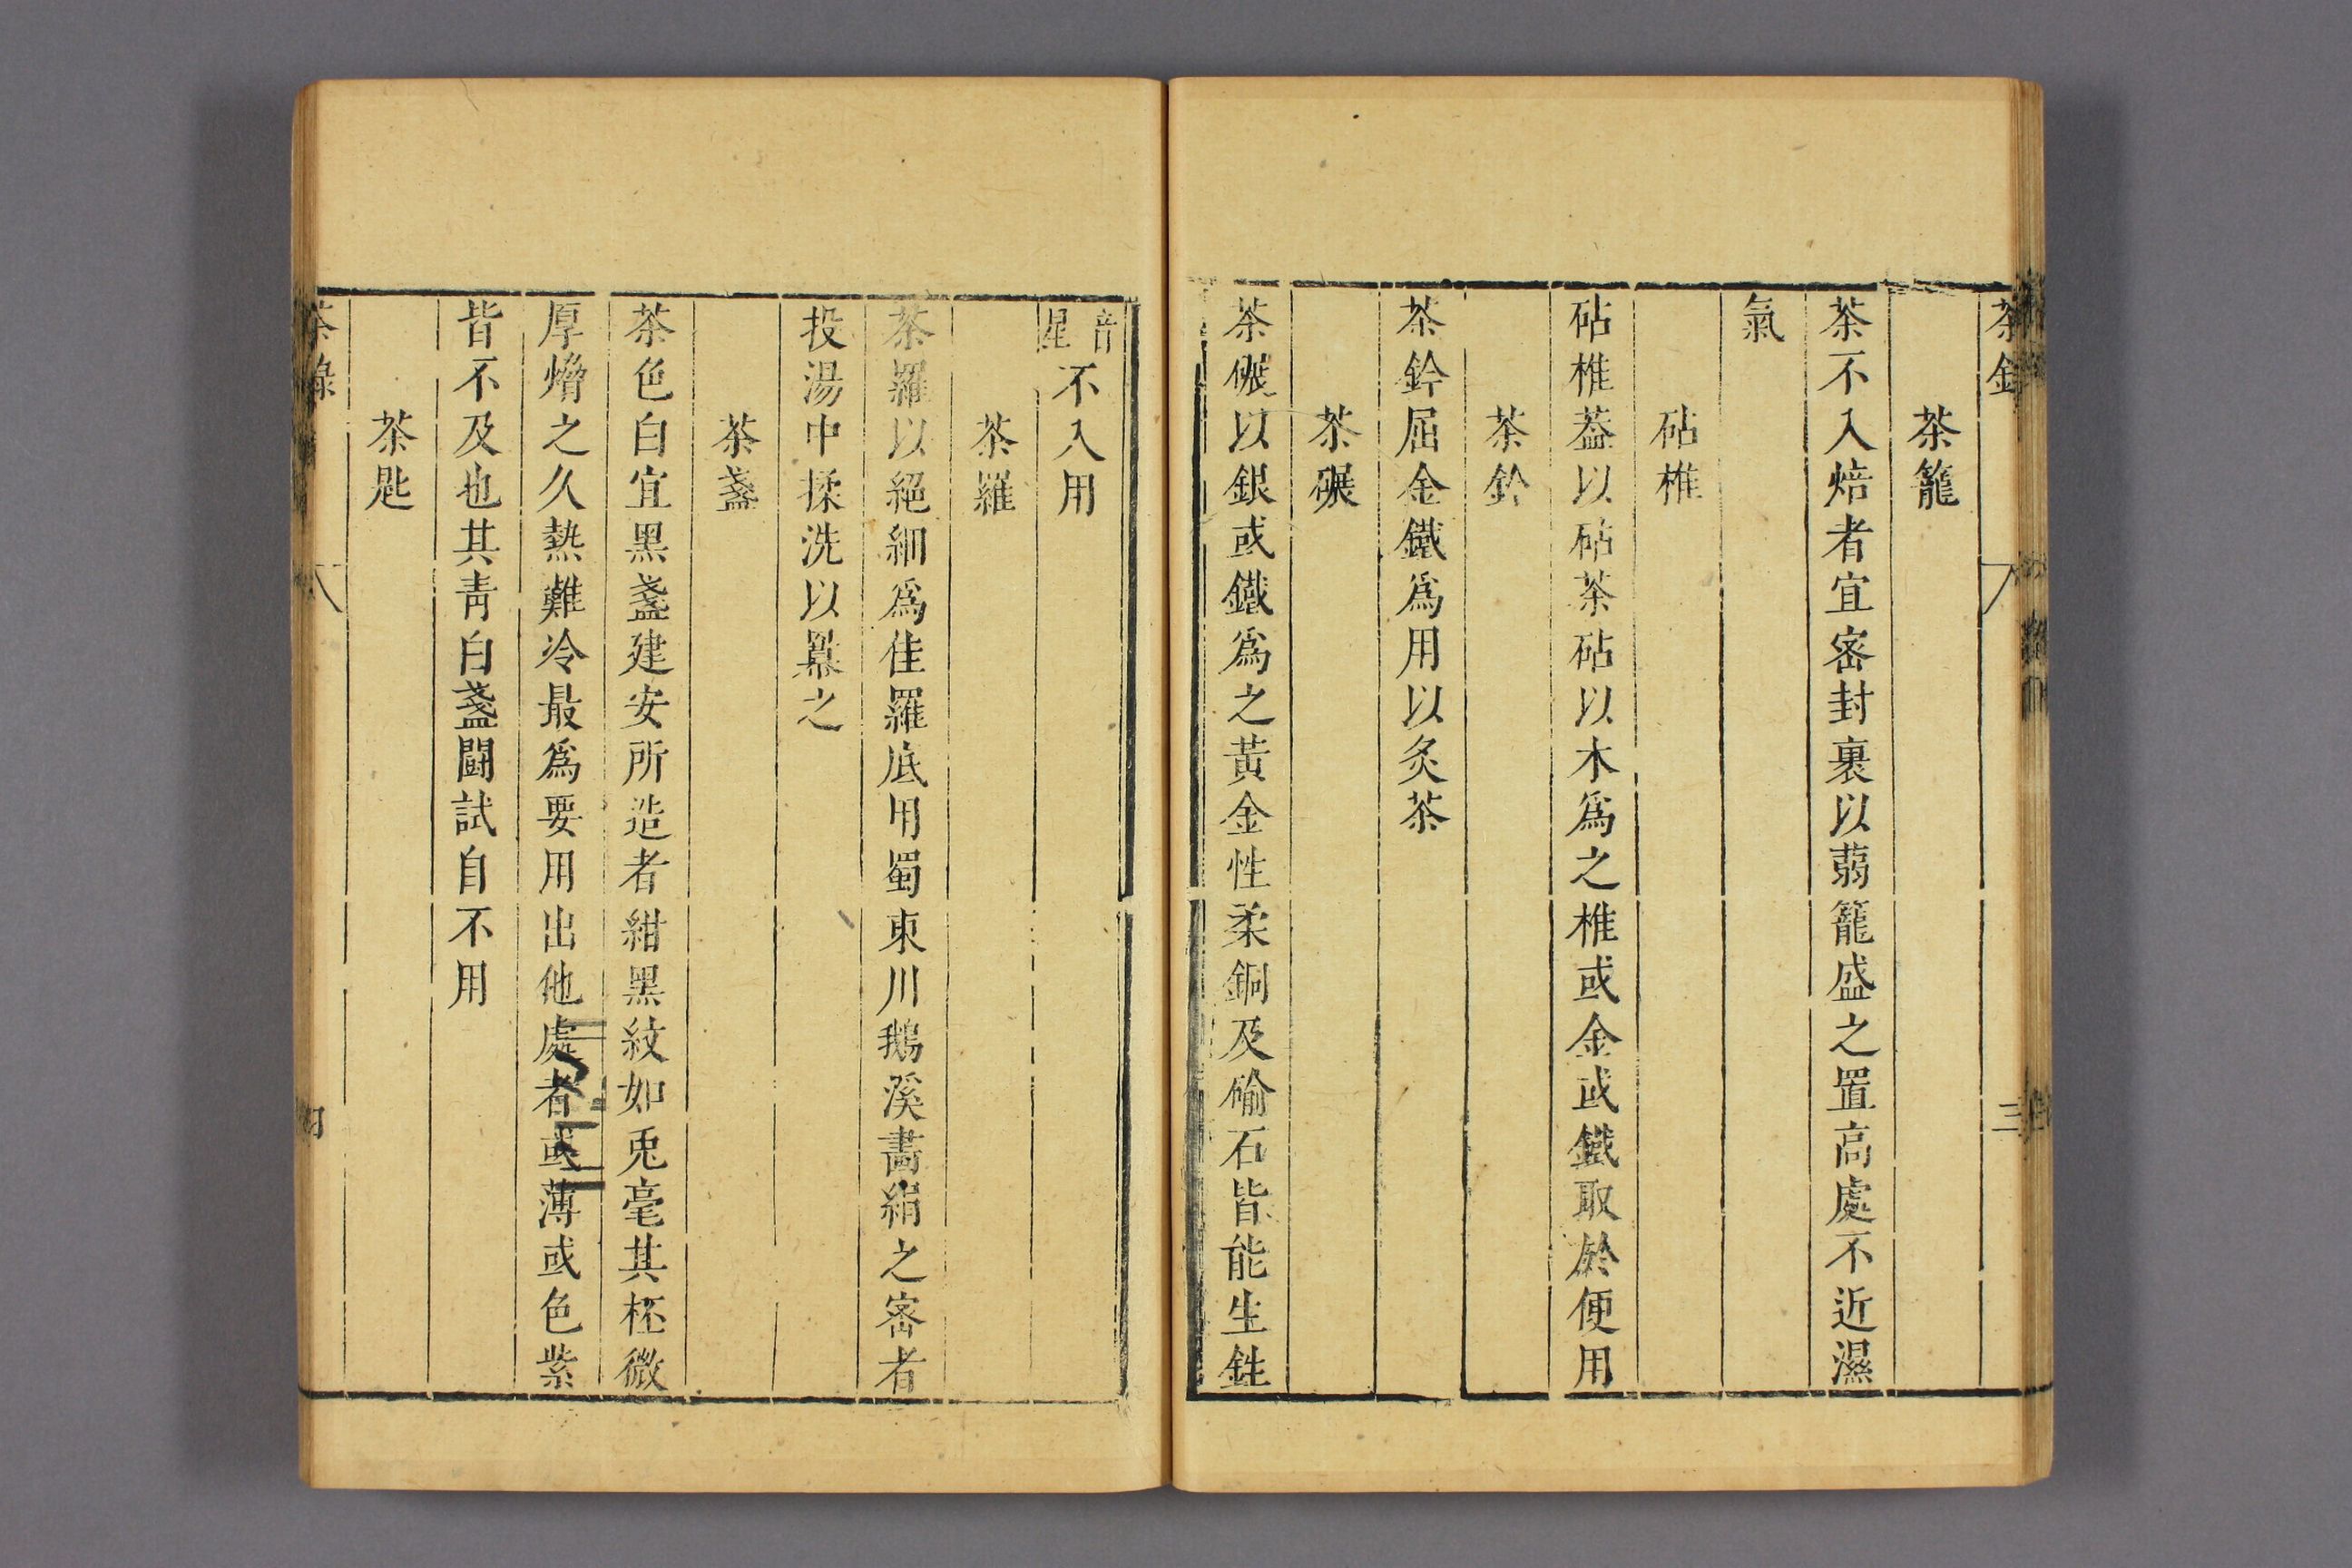 茶籠
茶不入焙者宜密封裹以蒻籠盛之置高處不近濕
氣
砧椎
砧椎葢以砧茶砧以木爲之椎或金或鐵取於便用
茶鈐
茶鈐屈金鐵爲用以炙茶
茶碾
茶碾以銀或鐵爲之黃金性柔銅及碖石皆能生鉎
音星不入用
茶羅
茶羅以絕細爲佳羅底用蜀東川鵝溪畵絹之密者
投湯中揉洗以羃之
茶盞
茶色白宜黑盞建安所造者紺黑紋如兎毫其柸微
厚熁之久熱難冷最爲要用出他處者或薄或色紫
皆不及也其青白盞鬬試自不用
茶匙
茶錄